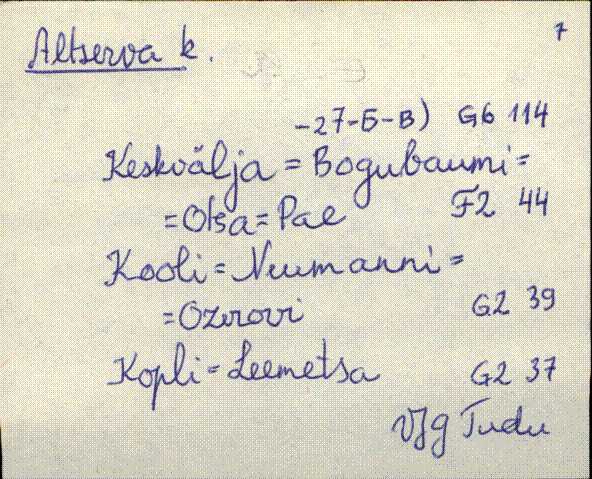 7
Altserva k.
-27-Б-В) G6 114
Keskvälja = Bogubaumi =
= Otsa = Pae F2 44
Kooli = Neumanni =
= Ozerovi G2 39
Kopli = Leemetsa G2 37
VJg Tudu